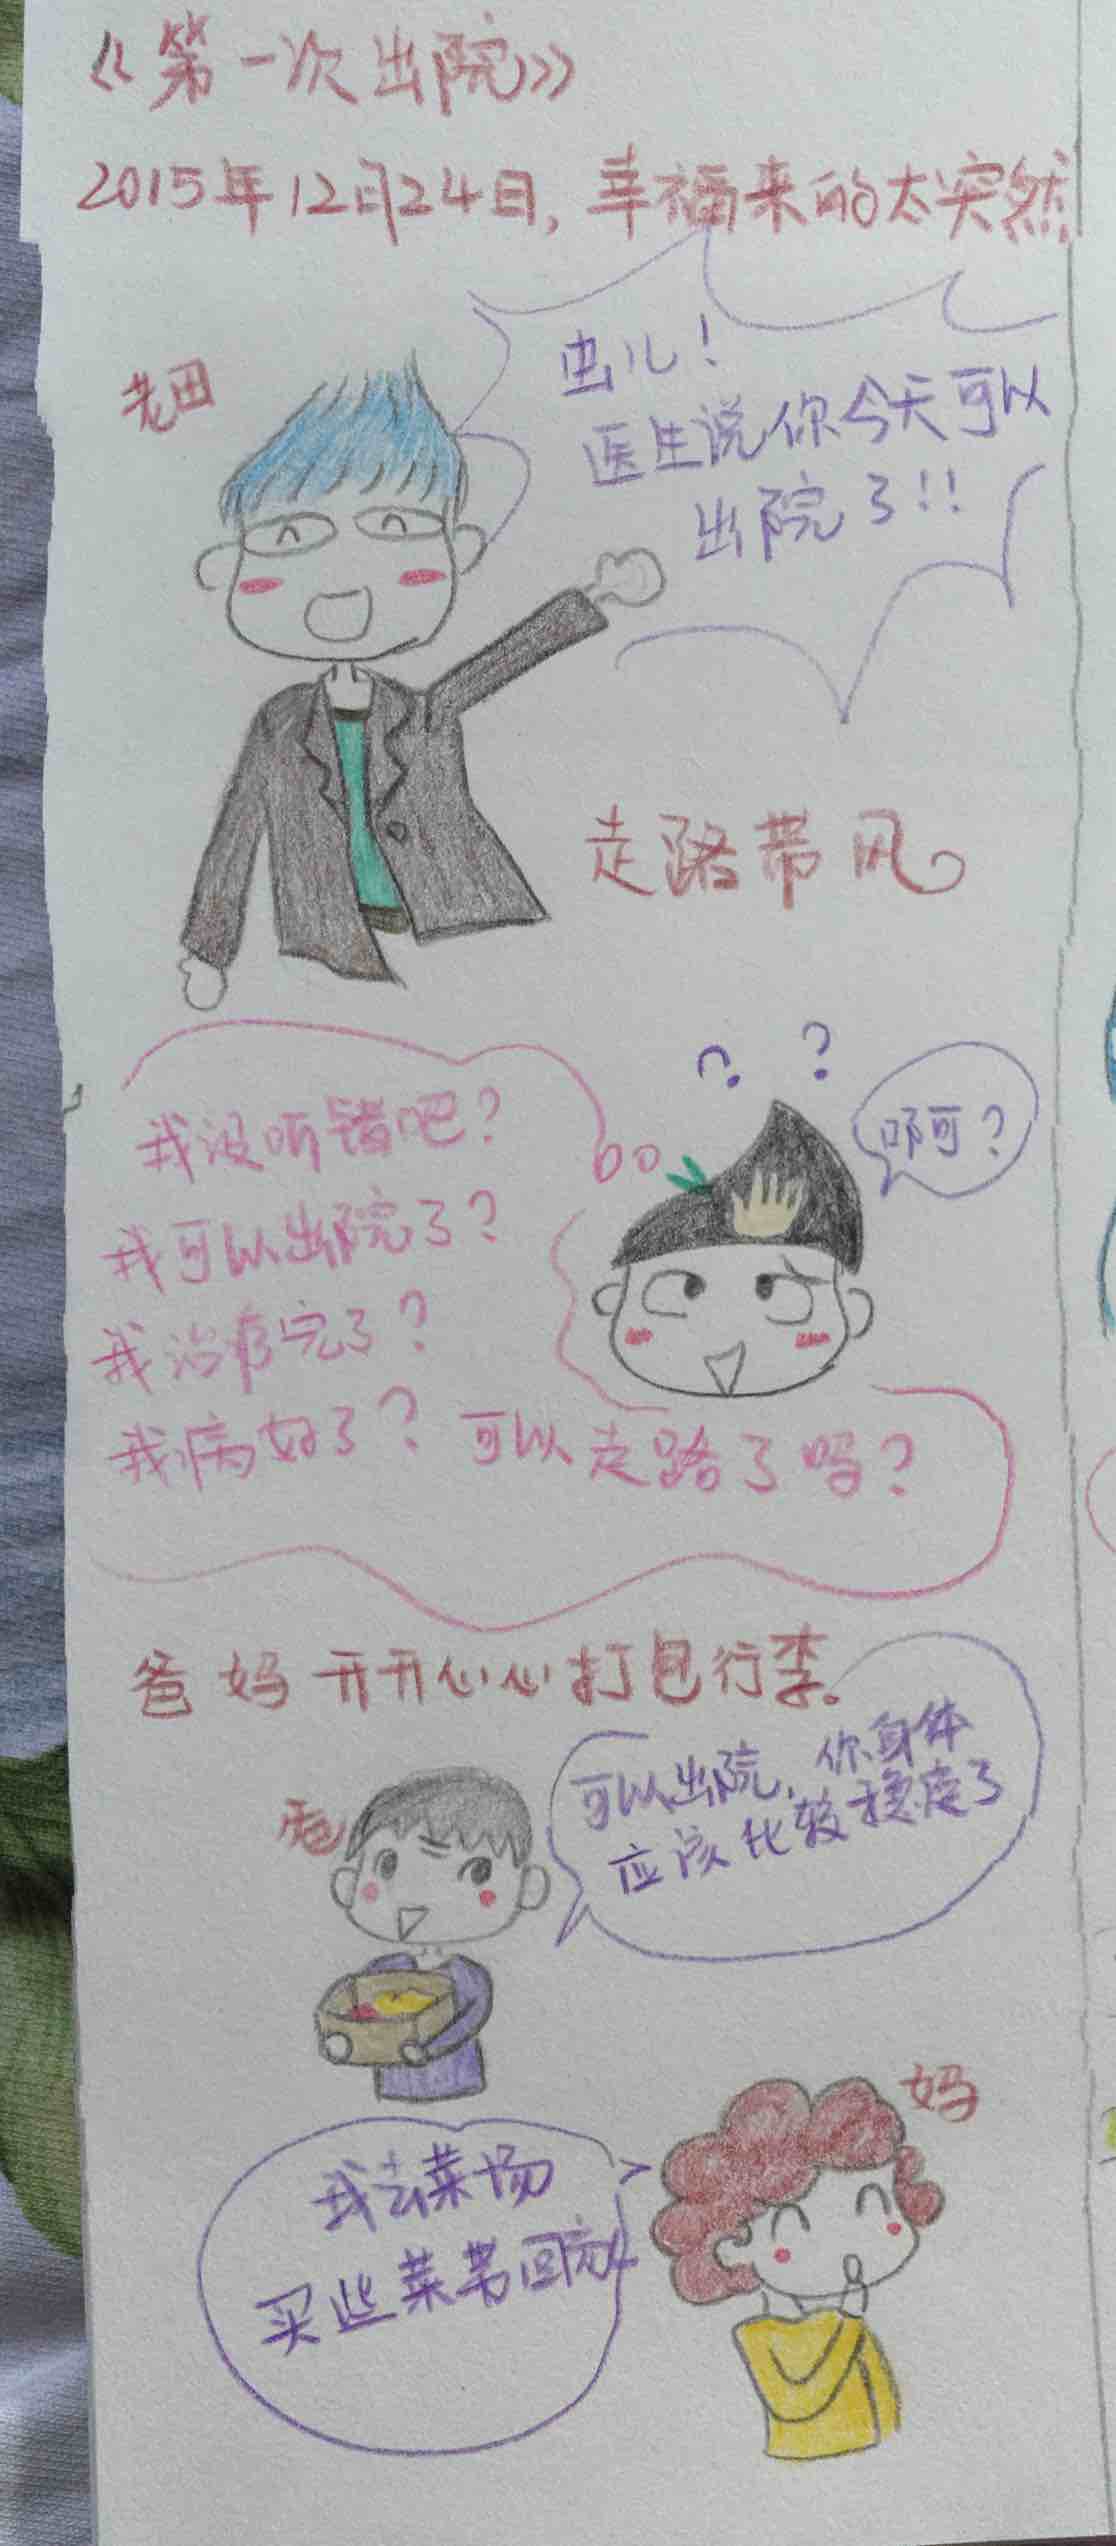 《第一次出院》
2015年12月24日,幸福来的太突然
老田
虫儿!
医生说你今天可以
出院了!!
走路带风。
啊?
我没听错吧?
我可以出院了?
我治疗完了?
我病好了?可以走路了吗?
爸妈开开心心打包行李。
可以出院,你身体
应该比较稳定了
爸
妈
我去菜场
买些菜带回家